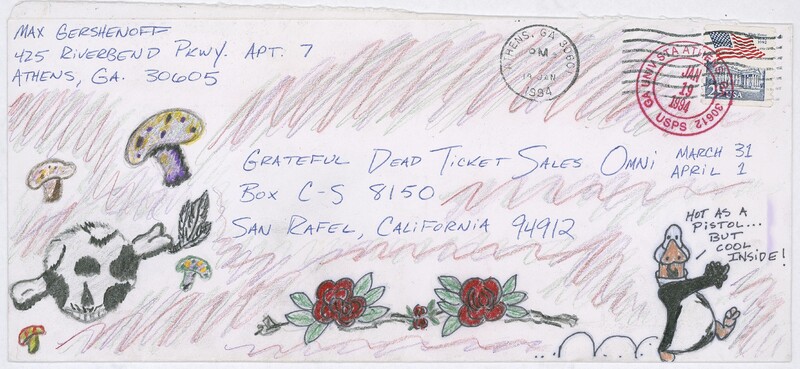 MAX GERSHENOFF
425 RIVERBEND PKWY. APT. 7
ATHENS, GA. 30605
ATHENS, GA 30601
PM
19 JAN
1994
GA UNIV STA ATHENS
JAN
19
1994
30612
USPS
USA
GRATEFUL DEAD TICKET SALES OMNI
MARCH 31
APRIL 1
BOX C-S 8150
SAN RAFEL, CALIFORNIA 94912
HOT AS A
PISTOL...
BUT
COOL
INSIDE!